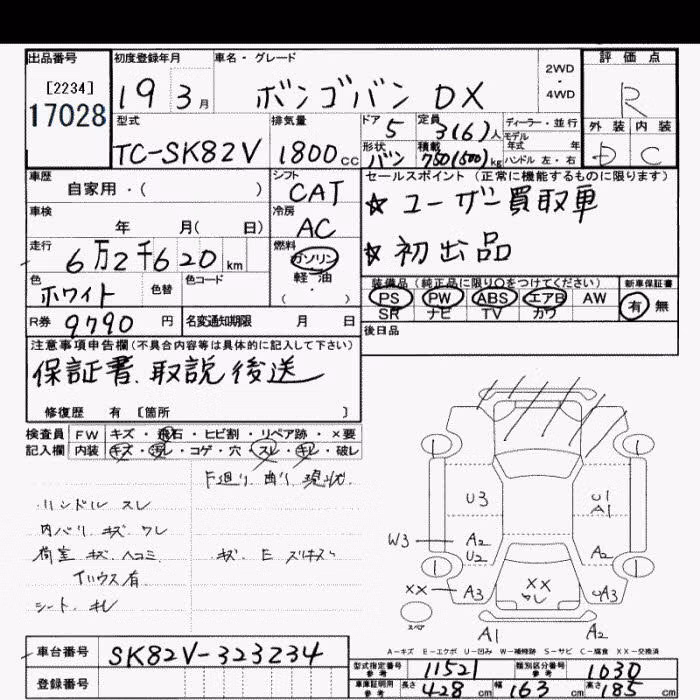 出品番号 初度登録年月 車名・グレード 2WD・4WD 評価点
[2234]
17028
19 3月 ボンゴバン DX R
型式 排気量 ドア 5 定員 3(6)人 ディーラー・並行 外装 内装
モデル年式 年
TC-SK82V 1800cc 形状 バン 積載 750(500)kg ハンドル 左・右 D C
車歴 シフト セールスポイント (正常に機能するものに限ります)
自家用・( ) CAT ☆ユーザー買取車
車検 冷房
年 月( 日) AC ☆初出品
走行 燃料
6万2千620km ガソリン
軽・油
・( )
色 色替 色コード 装備品 (純正品に限り○をつけてください) 新車保証書
ホワイト PS PW ABS エアB AW 有 無
SR ナビ TV カワ
R券 9790円 名変通知期限 月 日 後日品
注意事項申告欄(不具合内容等は具体的に記入して下さい)
保証書、取説後送
修復歴 有 [箇所 ]
検査員 FW キズ・飛石・ヒビ割・リペア跡・×要
記入欄 内装 キズ・汚レ・コゲ・穴・スレ・キレ・破レ
F廻り 曲り 現状
ハンドル スレ
内バリ キズ ワレ
荷室 キズ ヘコミ
シート キレ
U3 U1
A1
W3 A2 A2
U2
XX A3 XX UA3
スペア
A1 A2
A-キズ E-エクボ U-凹み W-補修跡 S-サビ C-腐食 XX-交換済
車台番号 SK82V-323234
型式指定番号 参考 11521 類別区分番号 参考 1030
登録番号 車庫証明用 参考 長さ 428cm 幅 163cm 高さ 185cm